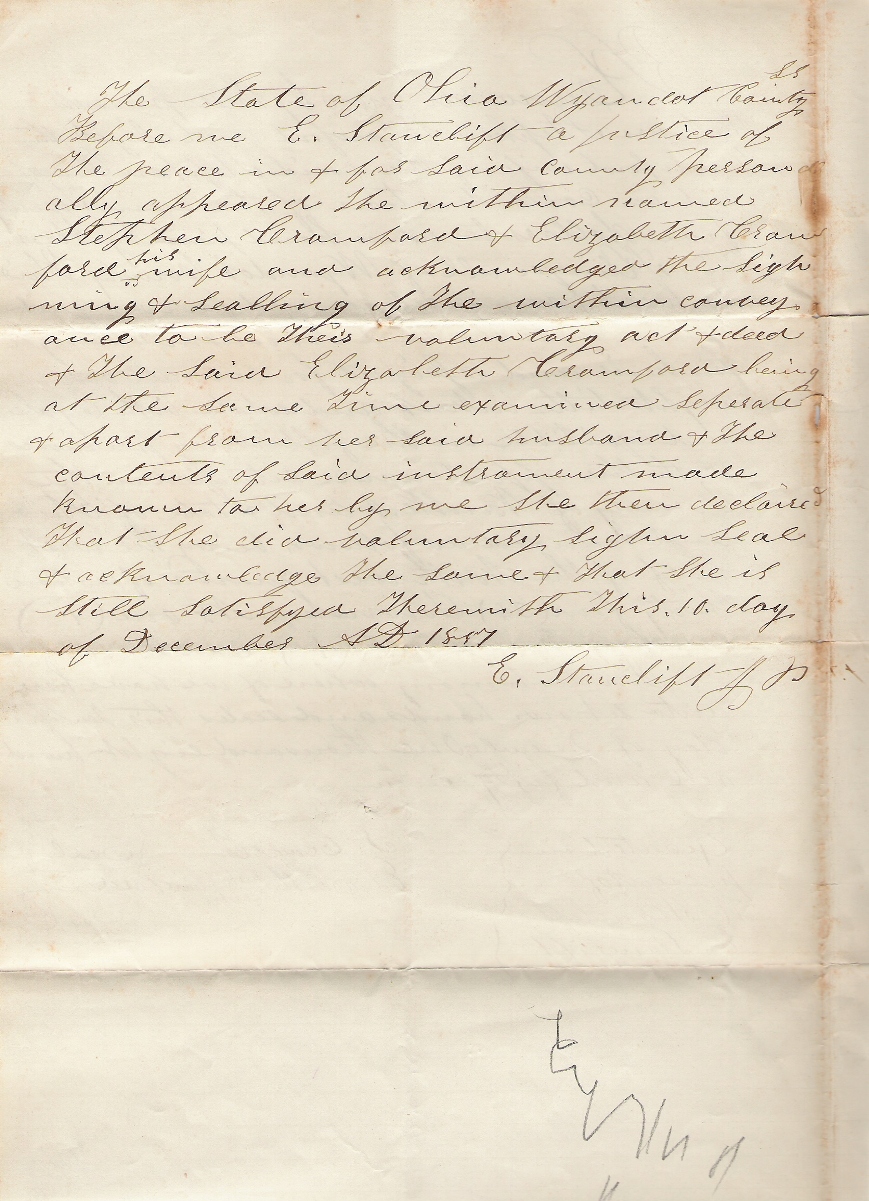 The State of Ohio Wyandot County SS
Before me E. Stanclift a justice of
the peace in & for said county person
ally appeared the within named
Stephen Crawford & Elizabeth Craw
ford his wife and acknowledged the sigh
ning & sealling of the within convey
ance to be their voluntary act & deed
& the said Elizabeth Crawford being
at the same time examined seperate
& apart from her said husband & the
contents of said instrument made
known to her by me she then declaired
that she did voluntary sighn seal
& acknowledge the same & that she is
still satisfyed therewith this. 10. day
of December AD 1857
E. Stanclift J P